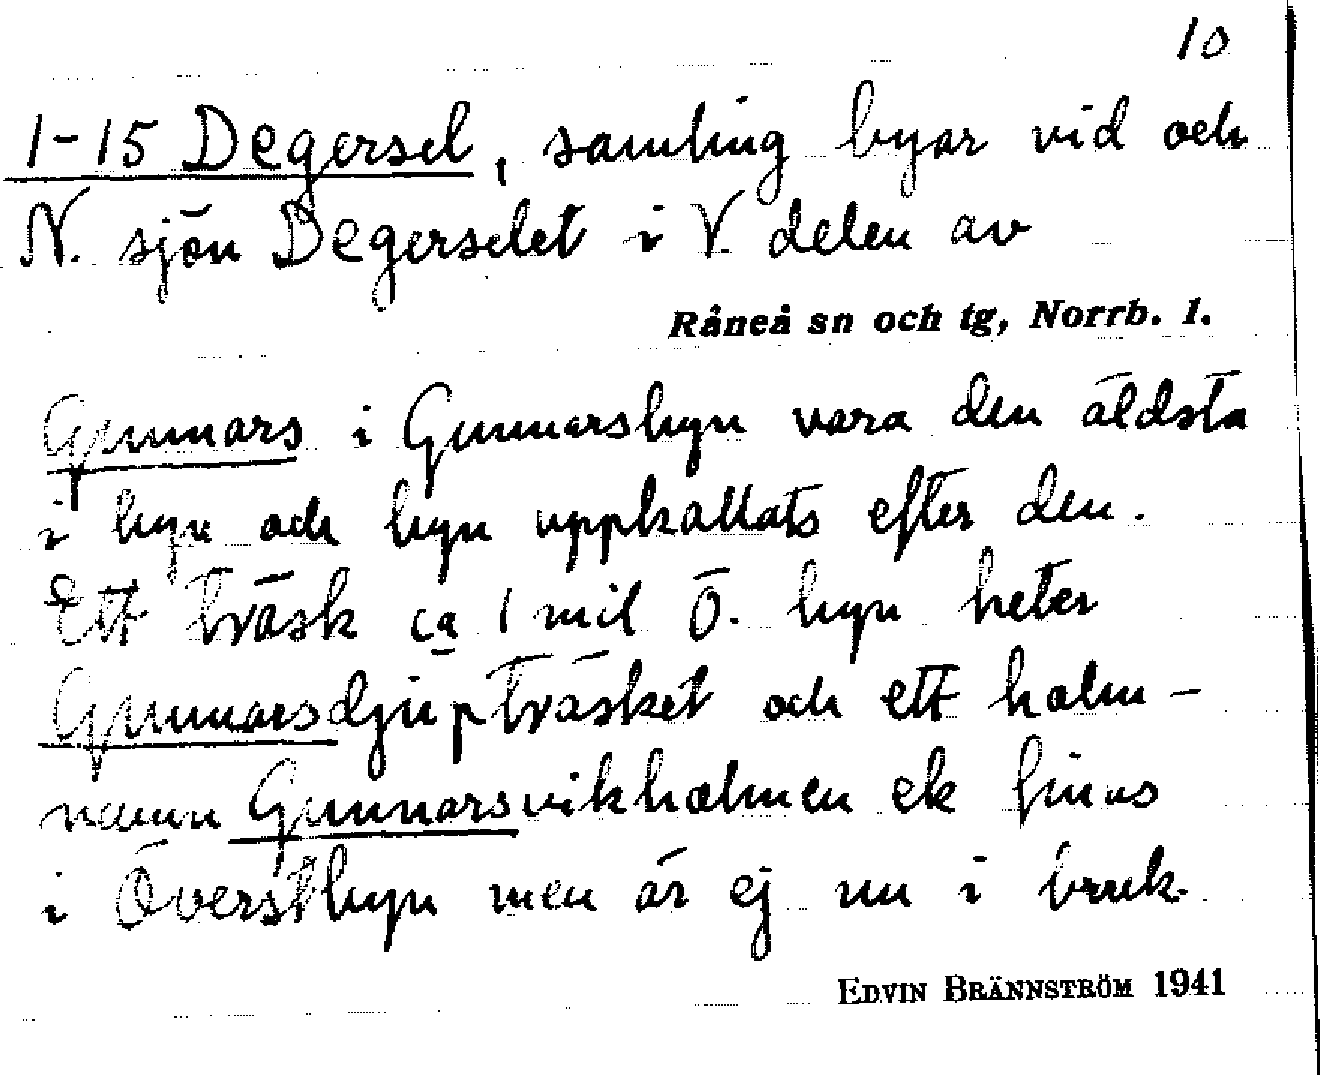 10
1-15 Degersel, samling byar vid och
N. sjön Degerselet i V. delen av
Råneå sn och tg, Norrb. l.
Gunnars i Gunnarsbyn vara den äldsta
i byn och byn uppkallats efter den.
Ett träsk ca 1 mil Ö. byn heter
Gunnarsdjupträsket och ett holm-
namn Gunnarsvikholmen ek finns
i Överstbyn men är ej nu i bruk.
EDVIN BRÄNNSTRÖM 1941